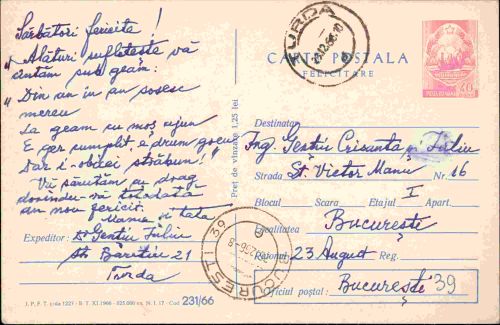 Sărbători fericite!
„Alături sufletește vă
cântăm sub geam:
„Din an în an sosesc
mereu
La geam cu moș ajun
E ger cumplit, e drum greu
Dar i-obicei străbun!"
Vă sărutăm cu drag
dorindu-vă totodată
an nou fericit.
Mama și tata
Expeditor: Dr Gențiu Iuliu
str. Barițiu 21
Turda
I. P. F. T. cda 1227 - B. T. XI. 1966 - 825.000 ex. N. I. 17 - Cod 231/66
Preț de vînzare 1,25 lei
TURDA
CARTE POSTALA
FELICITARE
POSTA ROMANA
40
Destinatar
Ing. Gențiu Crisanta și Iuliu
Strada Șt. Victor Manu Nr. 16
Blocul Scara Etajul I Apart.
Localitatea București
Raionul 23 August Reg.
Oficiul poștal: București 39
BUCURESTI 39